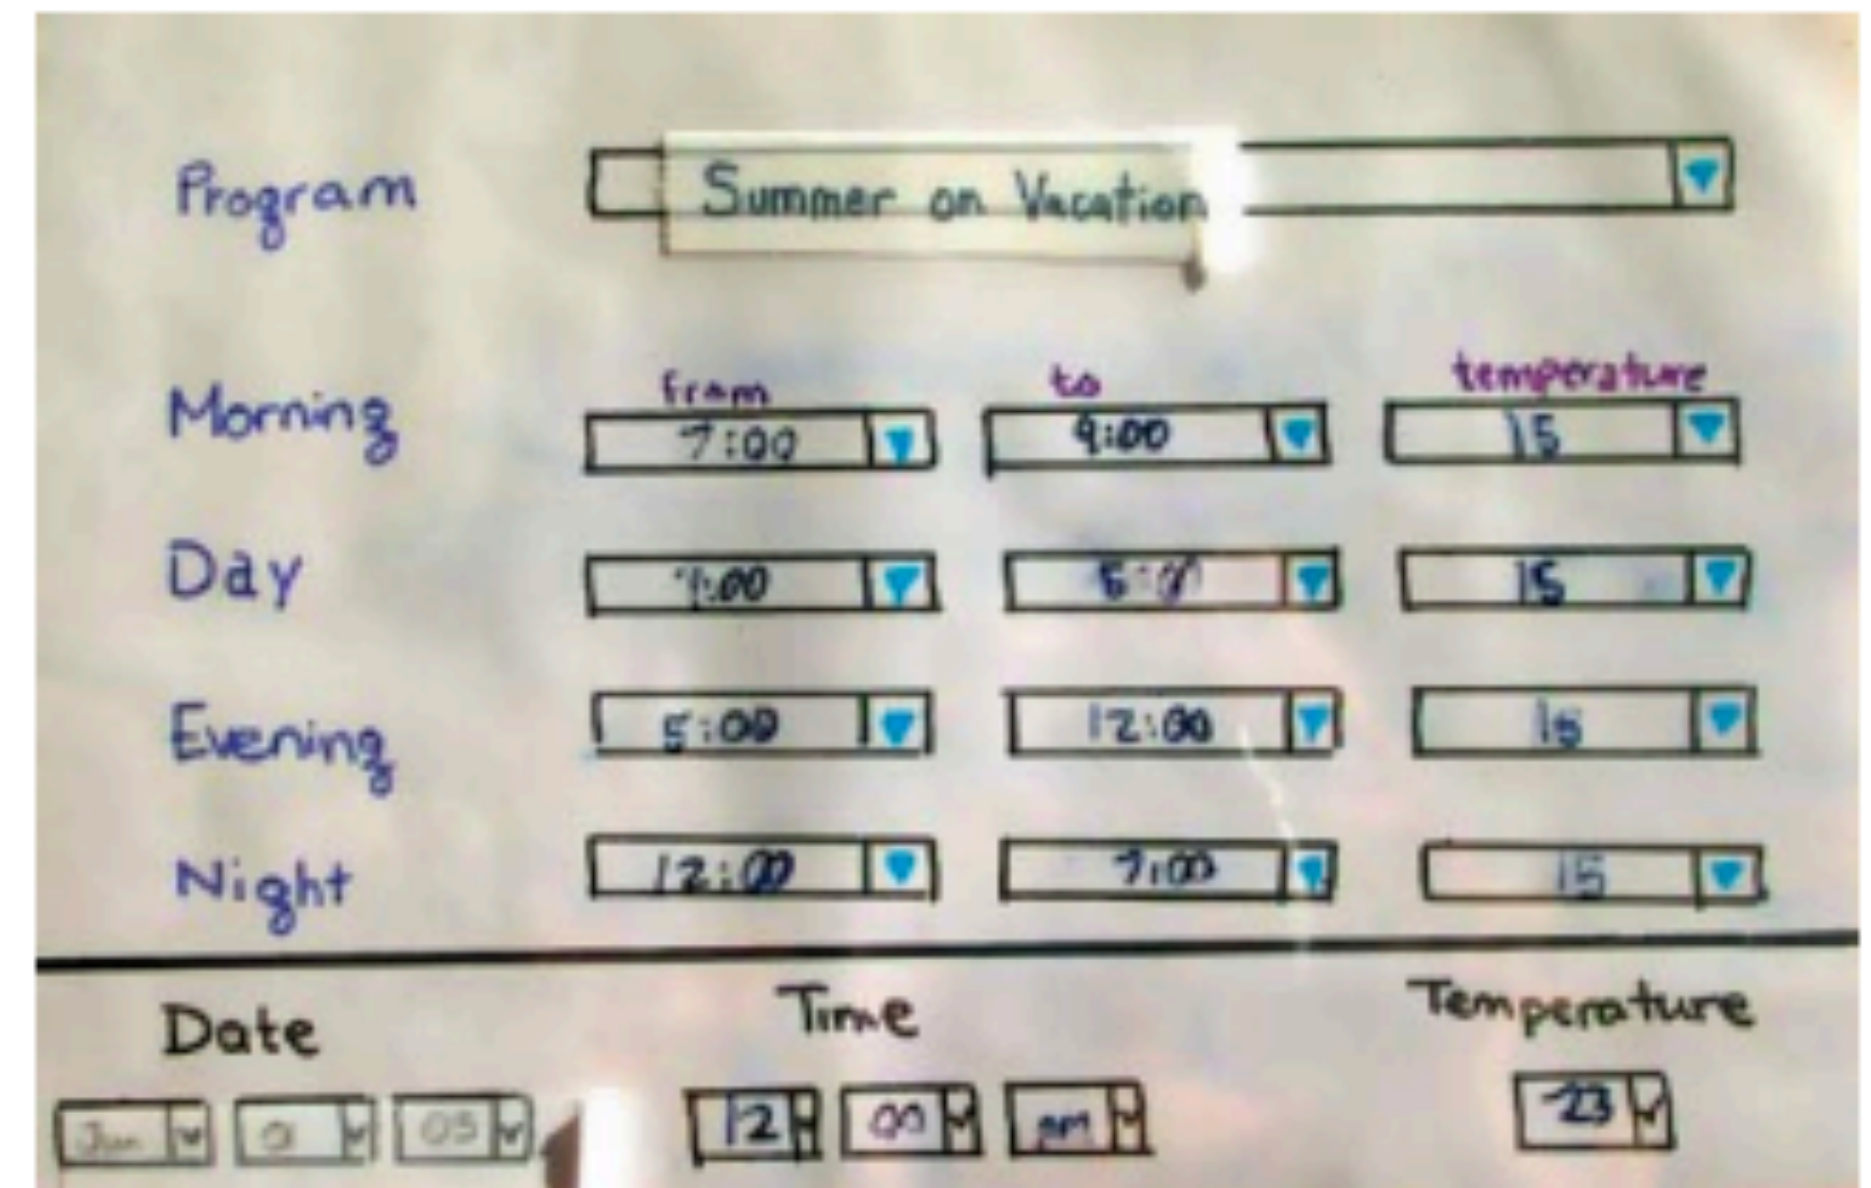 Program Summer on Vacation
from to temperature
Morning 7:00 9:00 15
Day :00 5:00 15
Evening 5:00 12:00 15
Night 12:00 7:00 15
Date Time Temperature
Jun 05 12 00 23